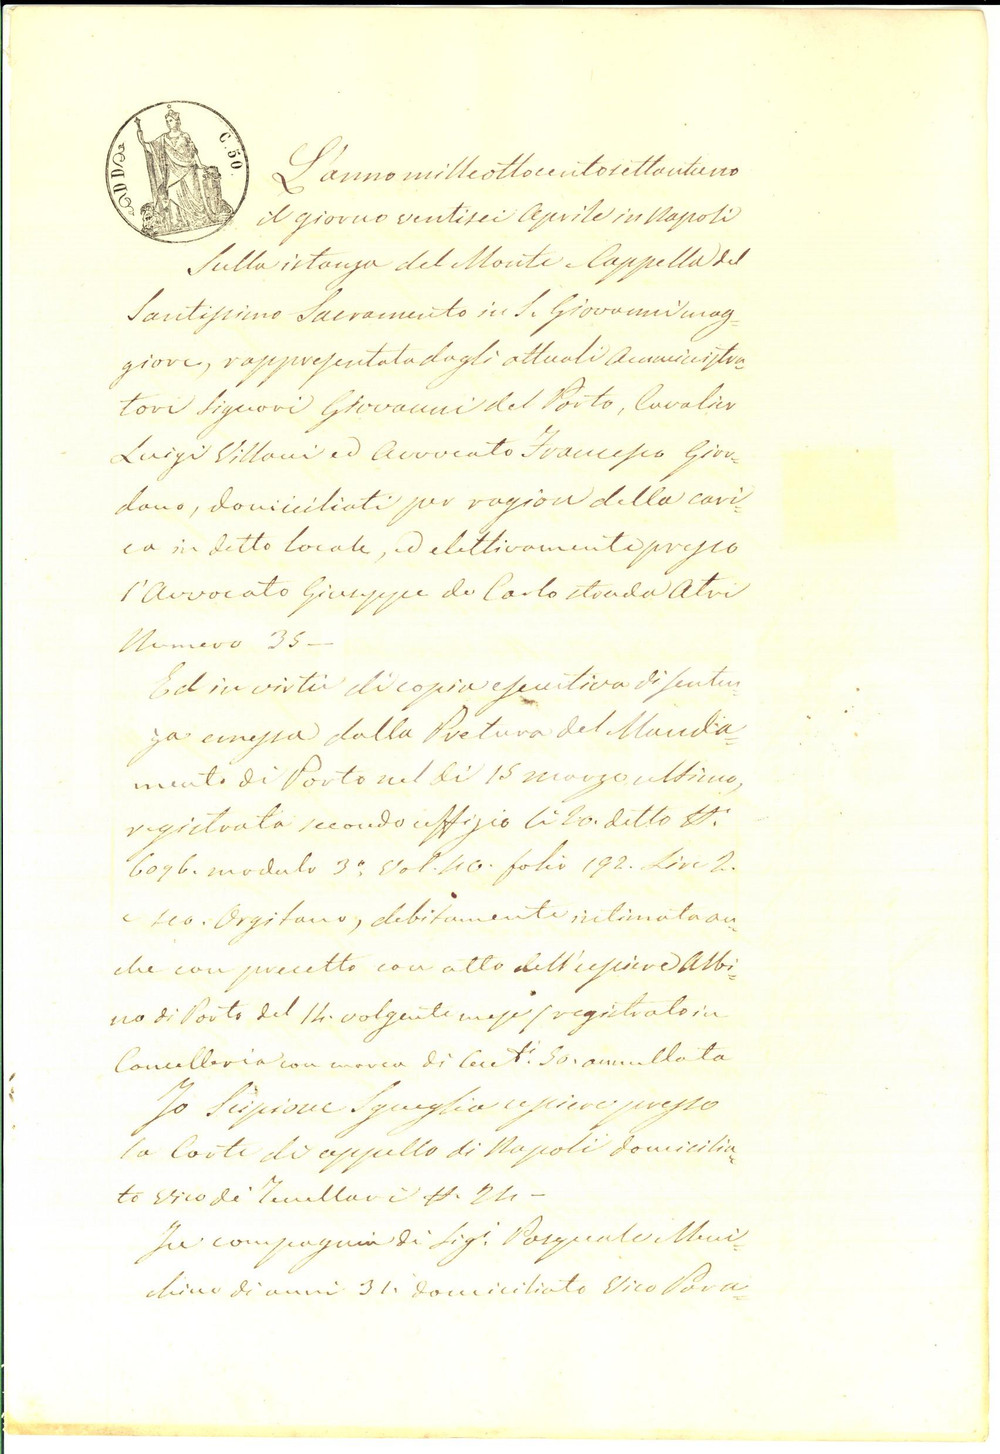 DD
C. 50.
L'anno milleottocentosettantuno
il giorno ventisei Aprile in Napoli
Sulla istanza del Monte e Cappella del
Santissimo Sacramento in S. Giovanni mag=
giore, rappresentata dagli attuali Amministra=
tori Signori Giovanni del Porto, Cavalier
Luigi Villani ed Avvocato Francesco Gior=
dano, domiciliati per ragion della cari=
ca in detto locale, ed elettivamente presso
l'Avvocato Giuseppe de Carlo strada Atri
Numero 35 —
Ed in virtù di copia esecutiva di senten=
za emessa dalla Pretura del Manda=
mento di Porto nel dì 15 marzo ultimo,
registrata secondo uffizio li 20. detto N.
6096. modulo 3.° Vol. 40. folio 192. Lire 2.
e 40. Orgitano, debitamente intimata an=
che con precetto con atto dell'usciere Albi=
no di Porto del 14. volgente mese, registrato in
Cancelleria con marca di Cent.i 50. annullata
Io Scipione Squeglia usciere presso
la Corte di appello di Napoli domicilia=
to Vico de' Tenellari N. 24 —
In compagnia di Sig.r Pasquale Muni=
chino di anni 31. domiciliato Vico Para=